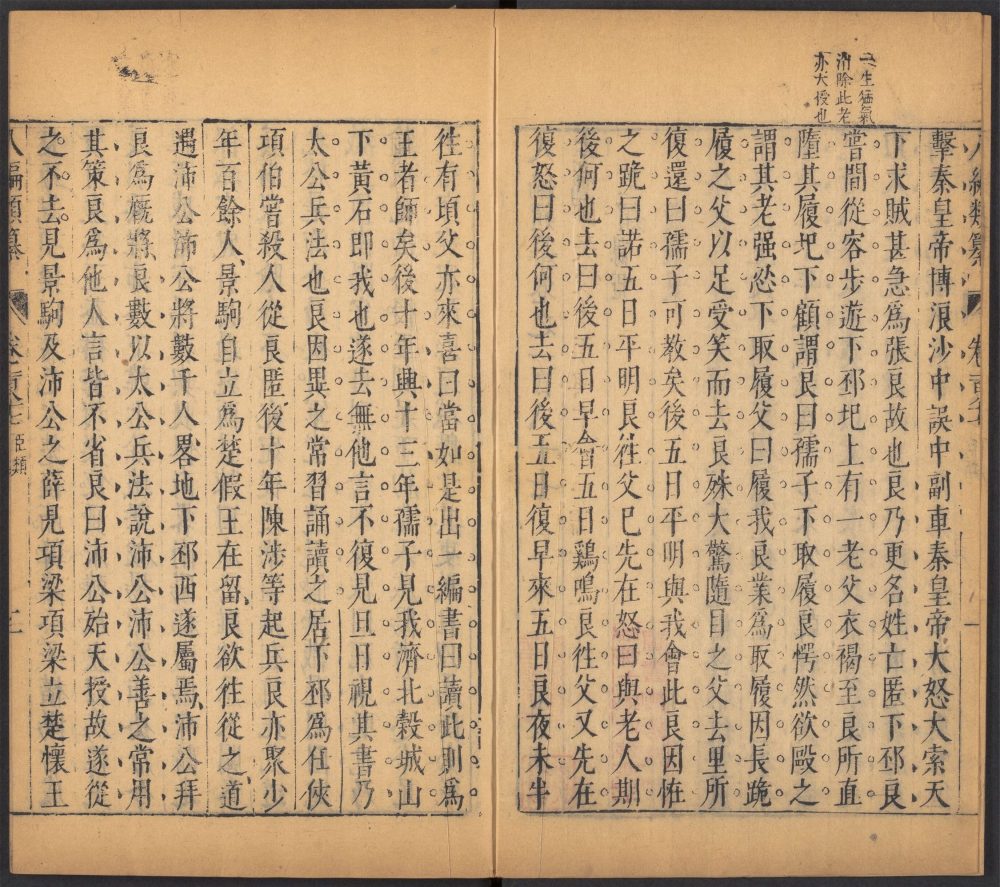 一生猛氣
消除此老
亦大侵也
擊秦皇帝博浪沙中誤中副車秦皇帝大怒大索天
下求賊甚急爲張良故也良乃更名姓亡匿下邳良
嘗間從容步遊下邳圯上有一老父衣褐至良所直
墮其履圯下顧謂良曰孺子下取履良愕然欲毆之
謂其老强忍下取履父曰履我良業爲取履因長跪
履之父以足受笑而去良殊大驚隨目之父去里所
復還曰孺子可教矣後五日平明與我會此良因怪
之跪曰諾五日平明良徃父已先在怒曰與老人期
後何也去曰後五日早會五日鷄鳴良徃父又先在
復怒曰後何也去曰後五日復早來五日良夜未半
徃有頃父亦來喜曰當如是出一編書曰讀此則爲
王者師矣後十年興十三年孺子見我濟北穀城山
下黃石即我也遂去無他言不復見旦日視其書乃
太公兵法也良因異之常習誦讀之居下邳爲任俠
項伯嘗殺人從良匿後十年陳涉等起兵良亦聚少
年百餘人景駒自立爲楚假王在留良欲徃從之道
遇沛公沛公將數千人畧地下邳西遂屬焉沛公拜
良爲廐將良數以太公兵法說沛公沛公善之常用
其策良爲他人言皆不省良曰沛公始天授故遂從
之不去見景駒及沛公之薛見項梁項梁立楚懷王
八編類纂